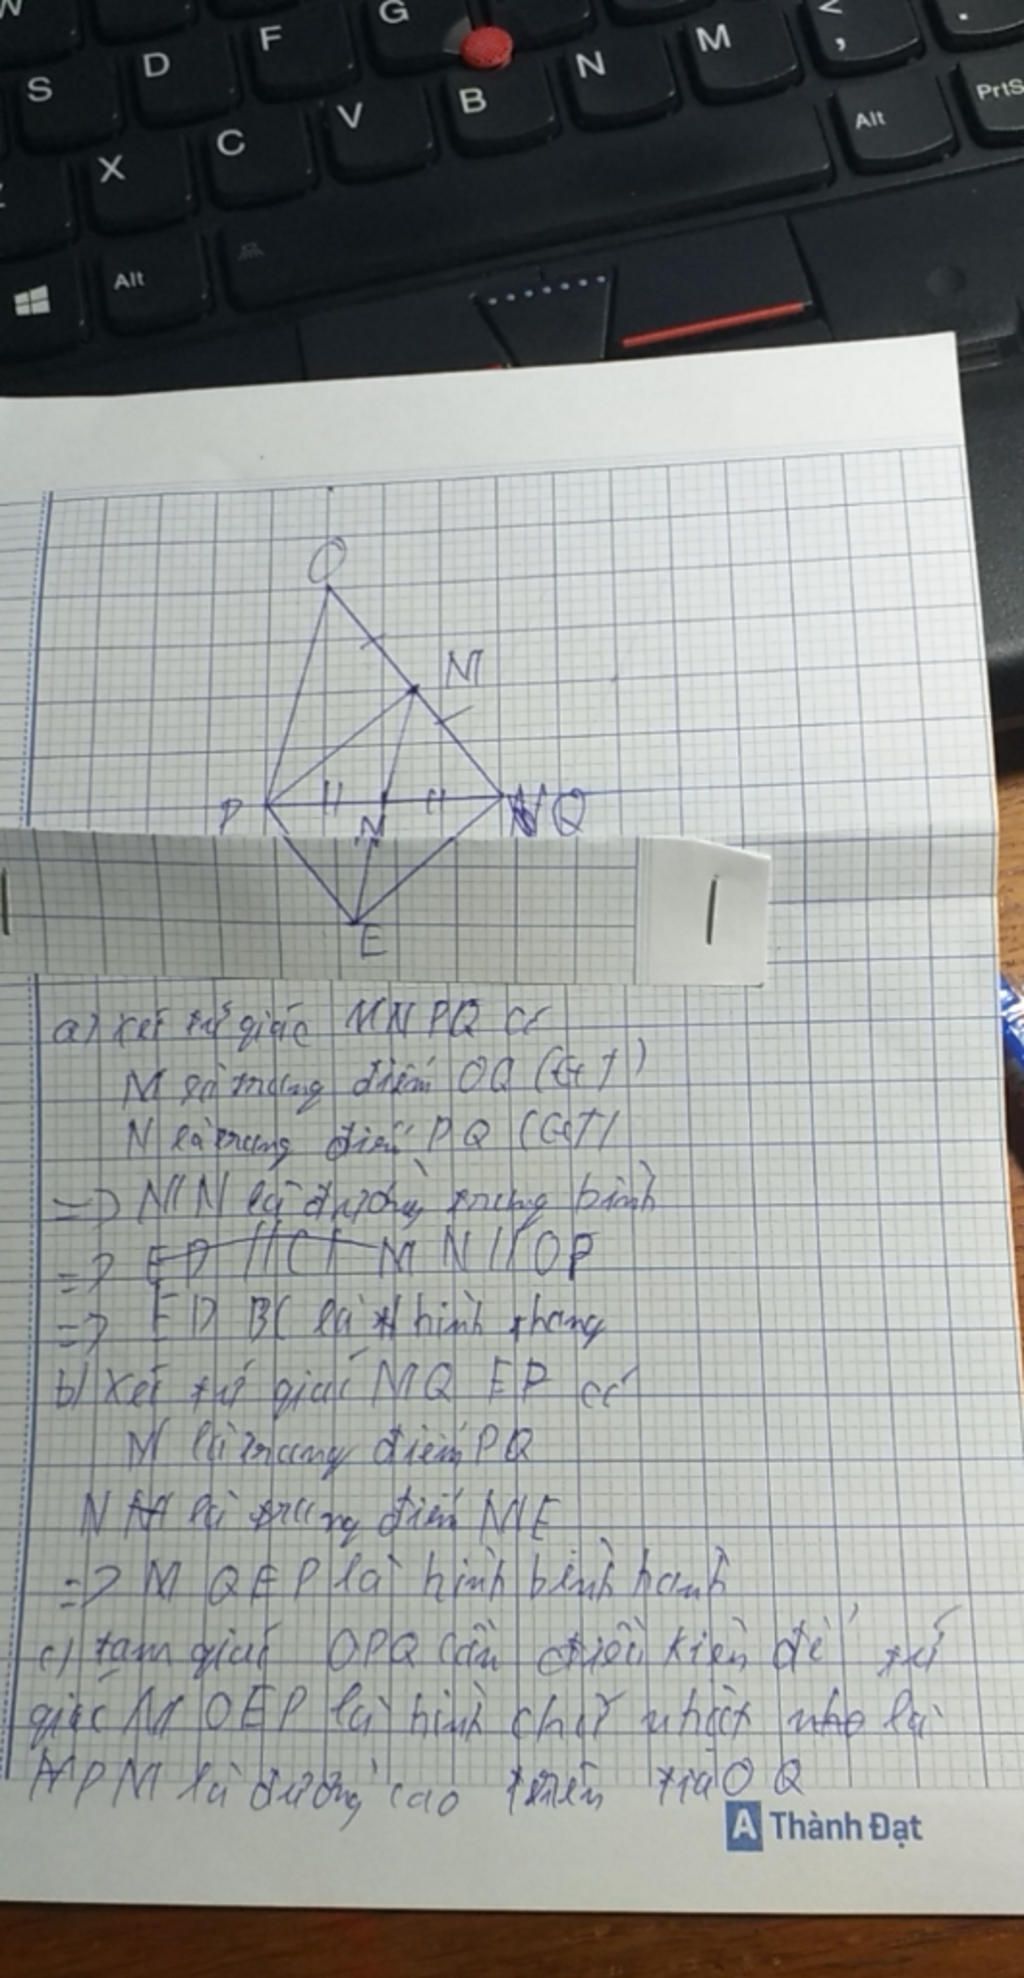 W
G
S
D
F
X
C
V
B
N
M
<
,
.
Alt
PrtS
Alt
O
M
P
N
Q
E
a) xét tứ giác MNPQ có
M là trung điểm OQ (GT)
N là trung điểm PQ (GT)
=> MN là đường trung bình
=> MN // OP
=> EDBC là hình thang
b) xét tứ giác MQEP có
N là trung điểm PQ
N là trung điểm ME
=> MQEP là hình bình hành
c) tam giác OPQ cần điều kiện để tứ
giác MOEP là hình chữ nhật là
PM là đường cao trên tia OQ
A Thành Đạt